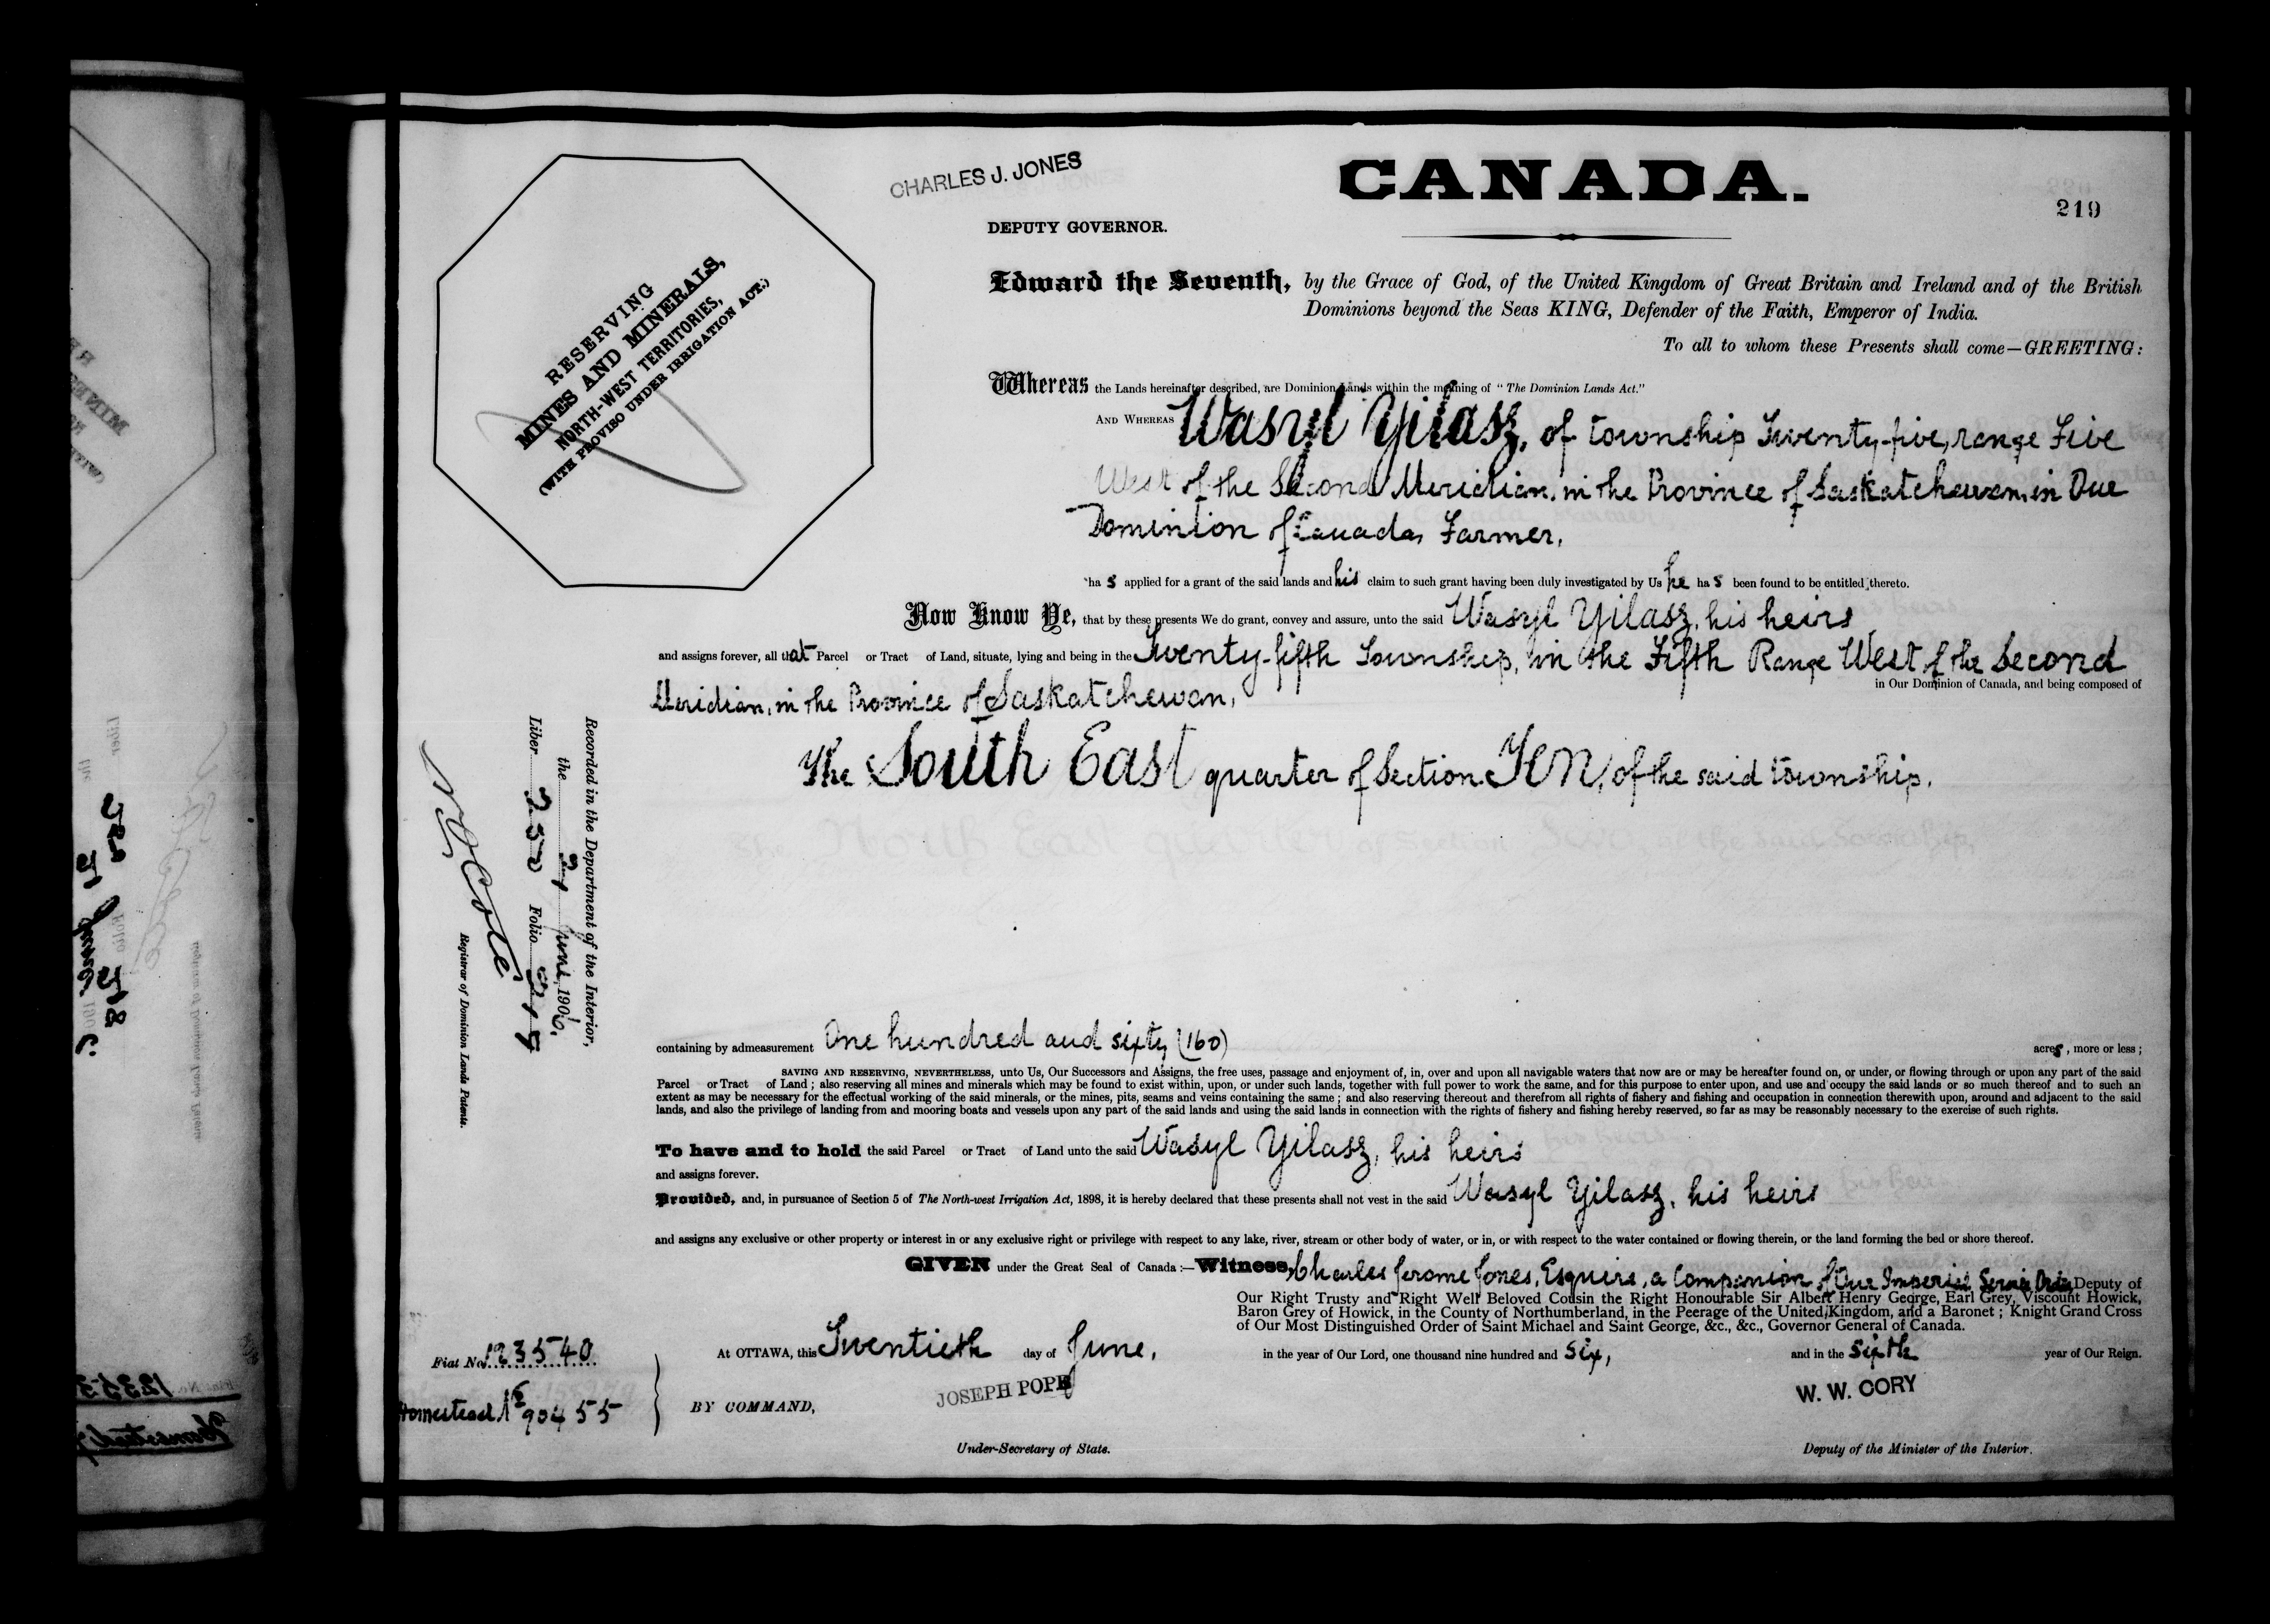 CHARLES J. JONES
CANADA.
219
DEPUTY GOVERNOR.
RESERVING
MINES AND MINERALS,
NORTH-WEST TERRITORIES,
(WITH PROVISO UNDER IRRIGATION ACT.)
Edward the Seventh, by the Grace of God, of the United Kingdom of Great Britain and Ireland and of the British
Dominions beyond the Seas KING, Defender of the Faith, Emperor of India.
To all to whom these Presents shall come—GREETING:
Whereas the Lands hereinafter described, are Dominion Lands within the meaning of "The Dominion Lands Act."
AND WHEREAS Wasyl Yilasz, of township Twenty-five, range Five
West of the Second Meridian, in the Province of Saskatchewan, in Our
Dominion of Canada, Farmer,
ha s applied for a grant of the said lands and his claim to such grant having been duly investigated by Us he ha s been found to be entitled thereto.
Now Know Ye, that by these presents We do grant, convey and assure, unto the said Wasyl Yilasz, his heirs
and assigns forever, all that Parcel or Tract of Land, situate, lying and being in the Twenty-fifth Township, in the Fifth Range West of the Second
in Our Dominion of Canada, and being composed of
Meridian, in the Province of Saskatchewan,
The South East quarter of Section Ten, of the said township.
Recorded in the Department of the Interior,
the 21 June, 1906,
Liber Folio
Registrar of Dominion Lands Patents.
containing by admeasurement One hundred and sixty (160) acres, more or less;
SAVING AND RESERVING, NEVERTHELESS, unto Us, Our Successors and Assigns, the free uses, passage and enjoyment of, in, over and upon all navigable waters that now are or may be hereafter found on, or under, or flowing through or upon any part of the said
Parcel or Tract of Land; also reserving all mines and minerals which may be found to exist within, upon, or under such lands, together with full power to work the same, and for this purpose to enter upon, and use and occupy the said lands or so much thereof and to such an
extent as may be necessary for the effectual working of the said minerals, or the mines, pits, seams and veins containing the same; and also reserving thereout and therefrom all rights of fishery and fishing and occupation in connection therewith upon, around and adjacent to the said
lands, and also the privilege of landing from and mooring boats and vessels upon any part of the said lands and using the said lands in connection with the rights of fishery and fishing hereby reserved, so far as may be reasonably necessary to the exercise of such rights.
To have and to hold the said Parcel or Tract of Land unto the said Wasyl Yilasz, his heirs
and assigns forever.
Provided, and, in pursuance of Section 5 of The North-west Irrigation Act, 1898, it is hereby declared that these presents shall not vest in the said Wasyl Yilasz, his heirs
and assigns any exclusive or other property or interest in or any exclusive right or privilege with respect to any lake, river, stream or other body of water, or in, or with respect to the water contained or flowing therein, or the land forming the bed or shore thereof.
GIVEN under the Great Seal of Canada:—Witness, Charles Jerome Jones, Esquire, a Companion of Our Imperial Service Order, Deputy of
Our Right Trusty and Right Well Beloved Cousin the Right Honourable Sir Albert Henry George, Earl Grey, Viscount Howick,
Baron Grey of Howick, in the County of Northumberland, in the Peerage of the United Kingdom, and a Baronet; Knight Grand Cross
of Our Most Distinguished Order of Saint Michael and Saint George, &c., &c., Governor General of Canada.
At OTTAWA, this Twentieth day of June, in the year of Our Lord, one thousand nine hundred and six, and in the sixth year of Our Reign.
Fiat No. 123540
Homestead No 90455
BY COMMAND,
JOSEPH POPE
Under-Secretary of State.
W. W. CORY
Deputy of the Minister of the Interior.